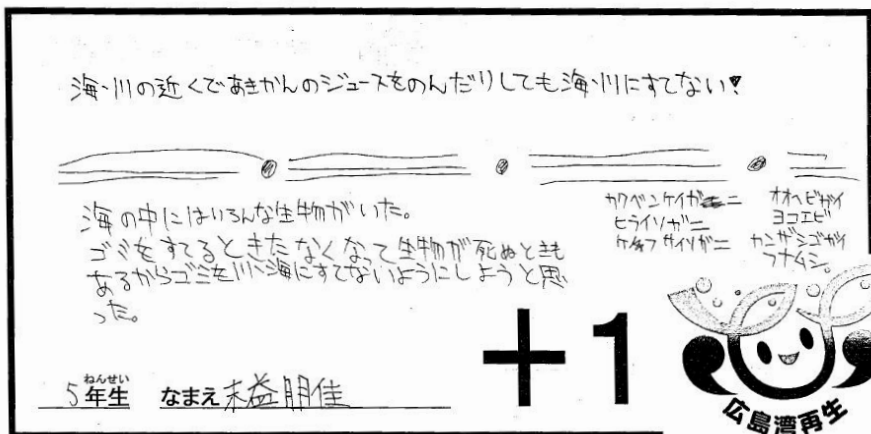 海・川の近くであきかんのジュースをのんだりしても海・川にすてない!
海の中にはいろんな生物がいた。
ゴミをすてるときたなくなって生物が死ぬときも
あるからゴミを川、海にすてないようにしようと思
った。
カクベンケイガニ
ヒライソガニ
ケフサイソガニ
オオヘビガイ
ヨコエビ
カンザシゴカイ
フナムシ。
+1
ねんせい
5年生 なまえ 末益朋佳
広島湾再生